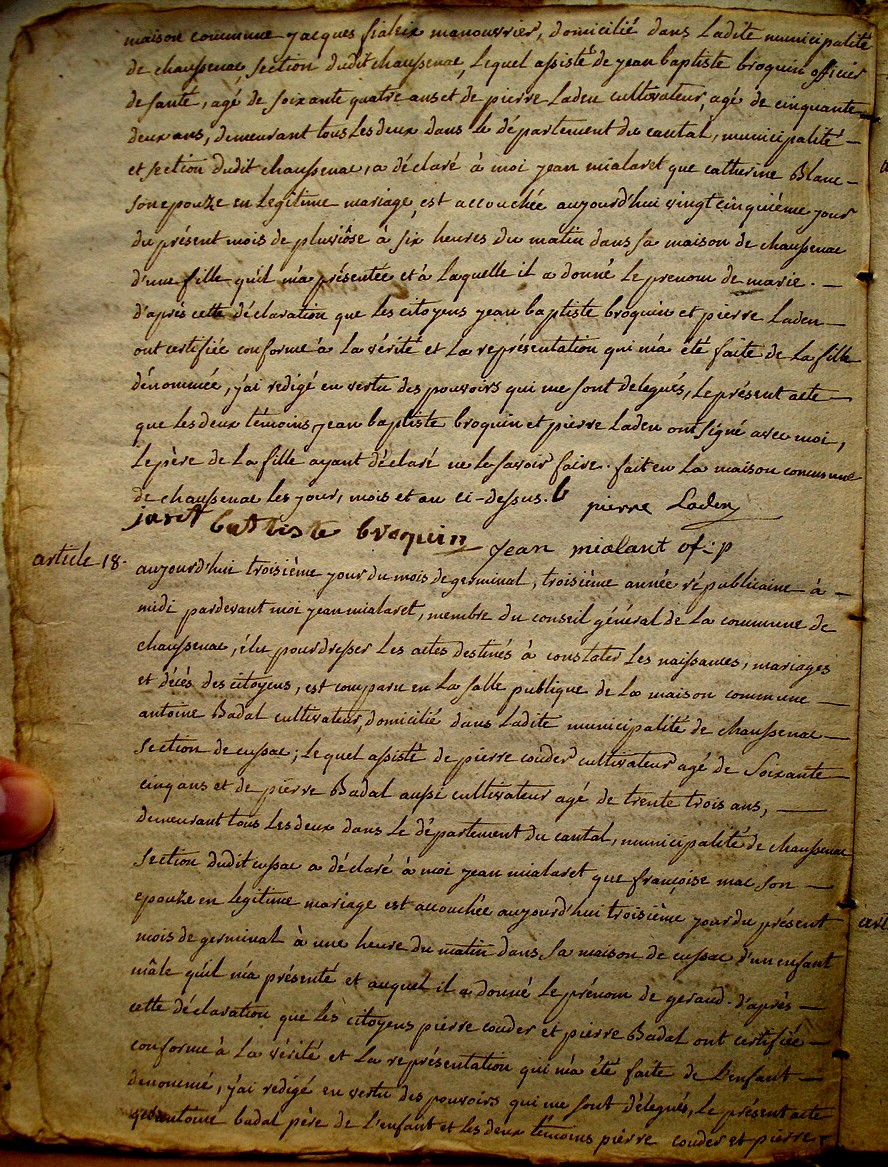 maison commune jacques fialeix manouvrier, domicilié dans Ladite municipalité
de chaussenac, section dudit chaussenac, Lequel assisté de jean baptiste broquin officier
de santé, agé de soixante quatre ans et de pierre Laden cultivateur, agé de cinquante
deux ans, demeurant tous Les deux dans Le département du cantal, municipalité
et section dudit chaussenac, a déclaré à moi jean mialaret que catherine Blanc
son epouze en Legitime mariage, est accouchée aujourd'hui vingt cinquième jour
du présent mois de pluviôse à six heures du matin dans sa maison de chaussenac
d'une fille qu'il m'a présentée et à Laquelle il a donné Le prenom de marie. —
d'après cette déclaration que Les citoyens jean baptiste broquin et pierre Laden —
ont certifiée conforme à La vérité et La représentation qui m'a été faite de La fille
dénommée, j'ai redigé en vertu des pouvoirs qui me sont delegués, Le présent acte —
que Les deux témoins jean baptiste broquin et pierre Laden ont signé avec moi,
Le père de La fille ayant déclaré ne Le savoir faire. fait en La maison commune
de chaussenac Les jour, mois et an ci-dessus.
pierre Laden
battiste broquin
jean mialaret of: p
article 18.
aujourd'hui troisième jour du mois de germinal, troisième année républicaine à —
midi pardevant moi jean mialaret, membre du conseil général de La commune de
chaussenac, élu pour dresser Les actes destinés à constater Les naissances, mariages
et décès des citoyens, est comparu en La salle publique de La maison commune —
antoine Badal cultivateur, domicilié dans Ladite municipalité de chaussenac —
section de cussac; Lequel assisté de pierre couder cultivateur agé de Soixante
cinq ans et de pierre Badal aussi cultivateur agé de trente trois ans, —
demeurant tous Les deux dans Le département du cantal, municipalité de chaussenac
section dudit cussac a déclaré à moi jean mialaret que françoise mac son —
epouze en legitime mariage est accouchée aujourd'hui troisième jour du présent
mois de germinal à une heure du matin dans sa maison de cussac d'un enfant
mâle qu'il m'a présenté et auquel il a donné Le prénom de geraud. d'après —
cette déclaration que Les citoyens pierre couder et pierre Badal ont certifiée —
conforme à La vérité et La représentation qui m'a été faite de L'enfant —
denommé, j'ai redigé en vertu des pouvoirs qui me sont délegués, Le présent acte
qu'antoine badal père de L'enfant et Les deux témoins pierre couder et pierre